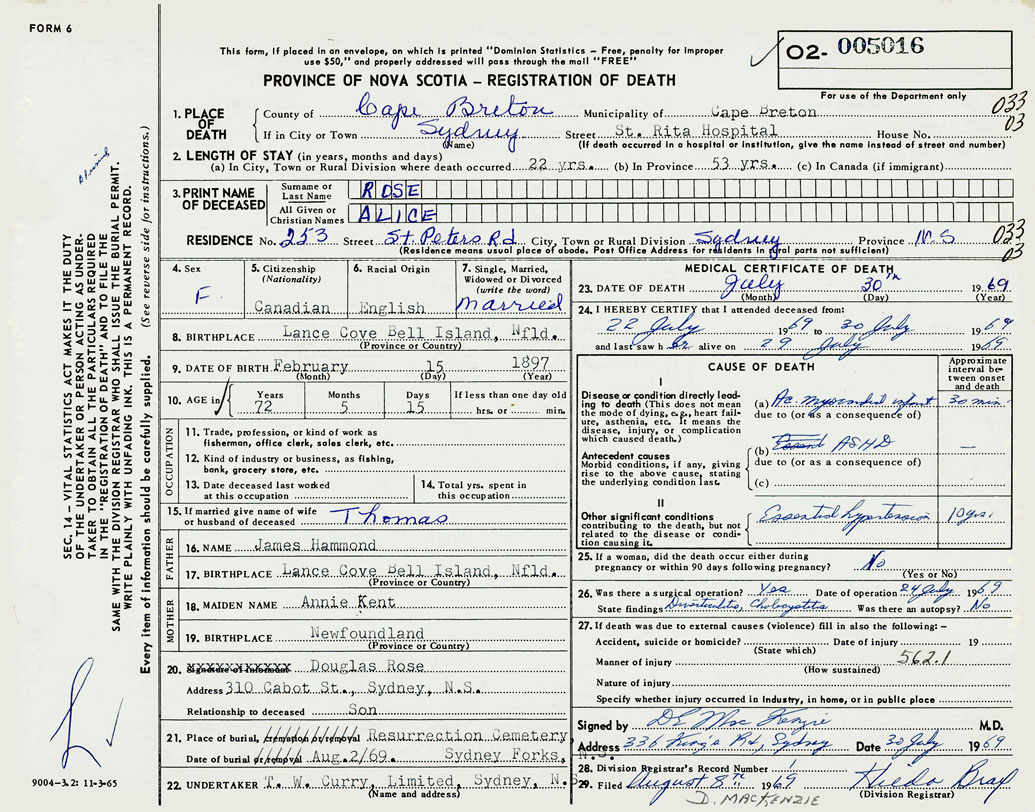 FORM 6
This form, if placed in an envelope, on which is printed "Dominion Statistics – Free, penalty for improper
use $50," and properly addressed will pass through the mail "FREE"
O2- 005016
For use of the Department only
PROVINCE OF NOVA SCOTIA – REGISTRATION OF DEATH
033
03
1. PLACE OF DEATH
County of Cape Breton Municipality of Cape Breton
If in City or Town Sydney Street St. Rita Hospital House No.
(Name) (If death occurred in a hospital or institution, give the name instead of street and number)
2. LENGTH OF STAY (in years, months and days)
(a) In City, Town or Rural Division where death occurred 22 yrs. (b) In Province 53 yrs. (c) In Canada (if immigrant)
3. PRINT NAME OF DECEASED
Surname or Last Name ROSE
All Given or Christian Names ALICE
RESIDENCE No. 253 Street St. Peters Rd City, Town or Rural Division Sydney Province N.S
(Residence means usual place of abode. Post Office Address for residents in rural parts not sufficient)
033
03
4. Sex F
5. Citizenship (Nationality) Canadian
6. Racial Origin English
7. Single, Married, Widowed or Divorced (write the word) Married
8. BIRTHPLACE Lance Cove Bell Island, Nfld.
(Province or Country)
9. DATE OF BIRTH February 15 1897
(Month) (Day) (Year)
10. AGE in Years 72 Months 5 Days 15 If less than one day old hrs. or min.
OCCUPATION
11. Trade, profession, or kind of work as
fisherman, office clerk, sales clerk, etc.
12. Kind of industry or business, as fishing,
bank, grocery store, etc.
13. Date deceased last worked at this occupation
14. Total yrs. spent in this occupation
15. If married give name of wife or husband of deceased Thomas
FATHER
16. NAME James Hammond
17. BIRTHPLACE Lance Cove Bell Island, Nfld.
(Province or Country)
MOTHER
18. MAIDEN NAME Annie Kent
19. BIRTHPLACE Newfoundland
(Province or Country)
20. Signature of Informant Douglas Rose
Address 310 Cabot St., Sydney, N.S.
Relationship to deceased Son
21. Place of burial, cremation or removal Resurrection Cemetery
Date of burial or removal Aug.2/69. Sydney Forks, N.S.
22. UNDERTAKER T. W. Curry, Limited, Sydney, N.S
(Name and address)
MEDICAL CERTIFICATE OF DEATH
23. DATE OF DEATH July 30th 1969.
(Month) (Day) (Year)
24. I HEREBY CERTIFY that I attended deceased from:
22 July 1969 to 30 July 1969
and last saw her alive on 29 July 1969
CAUSE OF DEATH
Approximate interval between onset and death
I
Disease or condition directly leading to death (This does not mean the mode of dying, e.g., heart failure, asthenia, etc. It means the disease, injury, or complication which caused death.)
(a) Ac myocardial infarct 30 min
due to (or as a consequence of)
Antecedent causes
Morbid conditions, if any, giving rise to the above cause, stating the underlying condition last.
(b) ASHD —
due to (or as a consequence of)
(c)
II
Other significant conditions contributing to the death, but not related to the disease or condition causing it.
Essential hypertension 10 yrs.
25. If a woman, did the death occur either during
pregnancy or within 90 days following pregnancy? No
(Yes or No)
26. Was there a surgical operation? Yes Date of operation 24 July 1969
State findings Was there an autopsy? No
27. If death was due to external causes (violence) fill in also the following: –
Accident, suicide or homicide? Date of injury 19
(State which)
Manner of injury 562.1
(How sustained)
Nature of injury
Specify whether injury occurred in industry, in home, or in public place
Signed by D E MacKenzie M.D.
Address 336 King's Rd, Sydney Date 30 July 1969
28. Division Registrar's Record Number 1
29. Filed August 8th 1969 Hilda Bray
(Division Registrar)
D. MACKENZIE
SEC. 14 – VITAL STATISTICS ACT MAKES IT THE DUTY
OF THE UNDERTAKER OR PERSON ACTING AS UNDER-
TAKER TO OBTAIN ALL THE PARTICULARS REQUIRED
IN THE "REGISTRATION OF DEATH" AND TO FILE THE
SAME WITH THE DIVISION REGISTRAR WHO SHALL ISSUE THE BURIAL PERMIT.
WRITE PLAINLY WITH UNFADING INK. THIS IS A PERMANENT RECORD.
Every item of information should be carefully supplied. (See reverse side for instructions.)
9004-3.2: 11-3-65